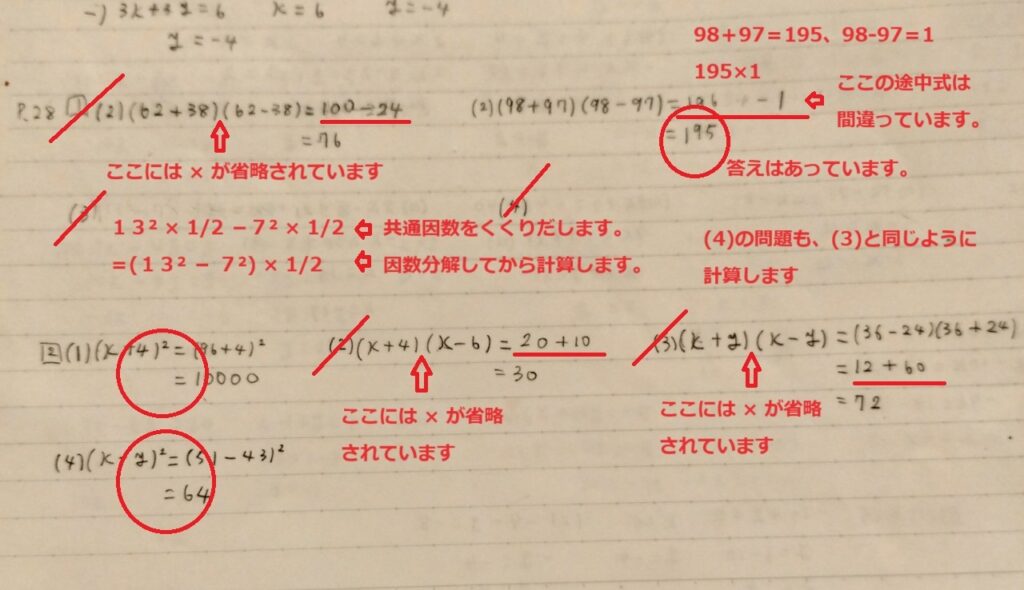 -) 3x+3y=6 x=6 y=-4
y=-4
98+97=195、98-97=1
195×1
ここの途中式は
間違っています。
P.28 1 (2)(62+38)(62-38)=100-24
=76
ここには × が省略されています
(2)(98+97)(98-97)=196 -1
=195
答えはあっています。
(3)
13²×1/2－7²×1/2 ⇦ 共通因数をくくりだします。
=(13²－7²)×1/2 ⇦ 因数分解してから計算します。
(4)
(4)の問題も、(3)と同じように
計算します
2 (1)(x+4)²=(96+4)²
=10000
(2)(x+4)(x-6)=20+10
=30
ここには × が省略
されています
(3)(x+y)(x-y)=(36-24)(36+24)
=12+60
=72
ここには × が省略
されています
(4)(x-y)²=(51-43)²
=64